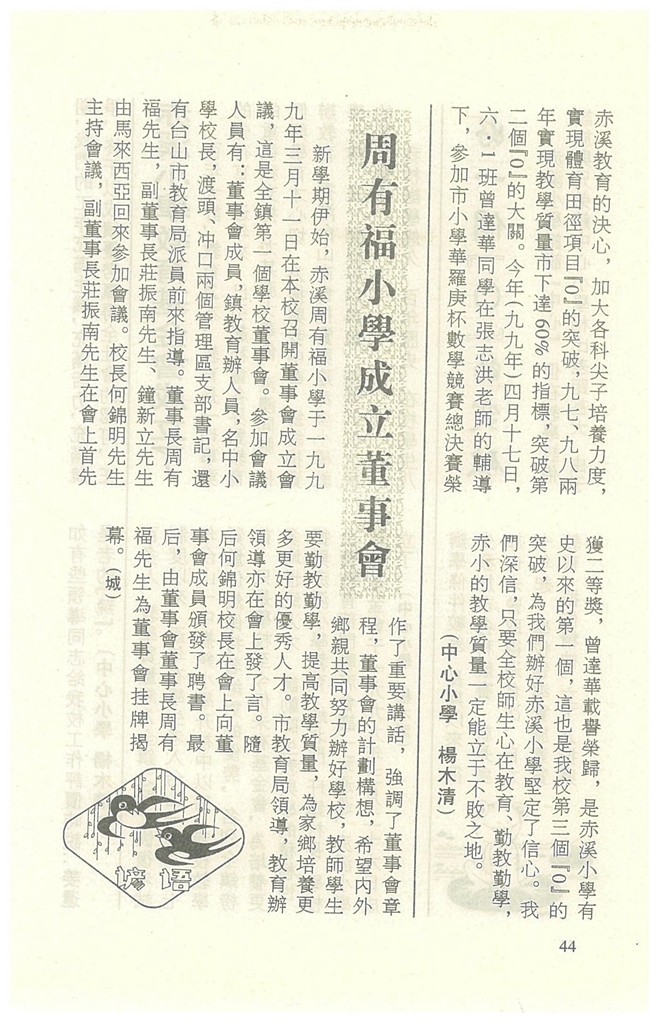 赤溪教育的決心，加大各科尖子培養力度，
實現體育田徑項目『O』的突破，九七、九八兩
年實現教學質量市下達60%的指標，突破第
二個『O』的大關。今年(九九年)四月十七日，
六·1班曾達華同學在張志洪老師的輔導
下，參加市小學華羅庚杯數學競賽總決賽榮
獲二等獎，曾達華載譽榮歸，是赤溪小學有
史以來的第一個，這也是我校第三個『O』的
突破，為我們辦好赤溪小學堅定了信心。我
們深信，只要全校師生心在教育、勤教勤學，
赤小的教學質量一定能立于不敗之地。
(中心小學 楊木清)
周有福小學成立董事會
新學期伊始，赤溪周有福小學于一九九
九年三月十一日在本校召開董事會成立會
議，這是全鎮第一個學校董事會。參加會議
人員有：董事會成員，鎮教育辦人員，名中小
學校長，渡頭、冲口兩個管理區支部書記，還
有台山市教育局派員前來指導。董事長周有
福先生，副董事長莊振南先生、鐘新立先生
由馬來西亞回來參加會議。校長何錦明先生
主持會議，副董事長莊振南先生在會上首先
作了重要講話，強調了董事會章
程，董事會的計劃構想，希望内外
鄉親共同努力辦好學校，教師學生
要勤教勤學，提高教學質量，為家鄉培養更
多更好的優秀人才。市教育局領導，教育辦
領導亦在會上發了言。隨
后何錦明校長在會上向董
事會成員頒發了聘書。最
后，由董事會董事長周有
福先生為董事會挂牌揭
幕。(城)
44